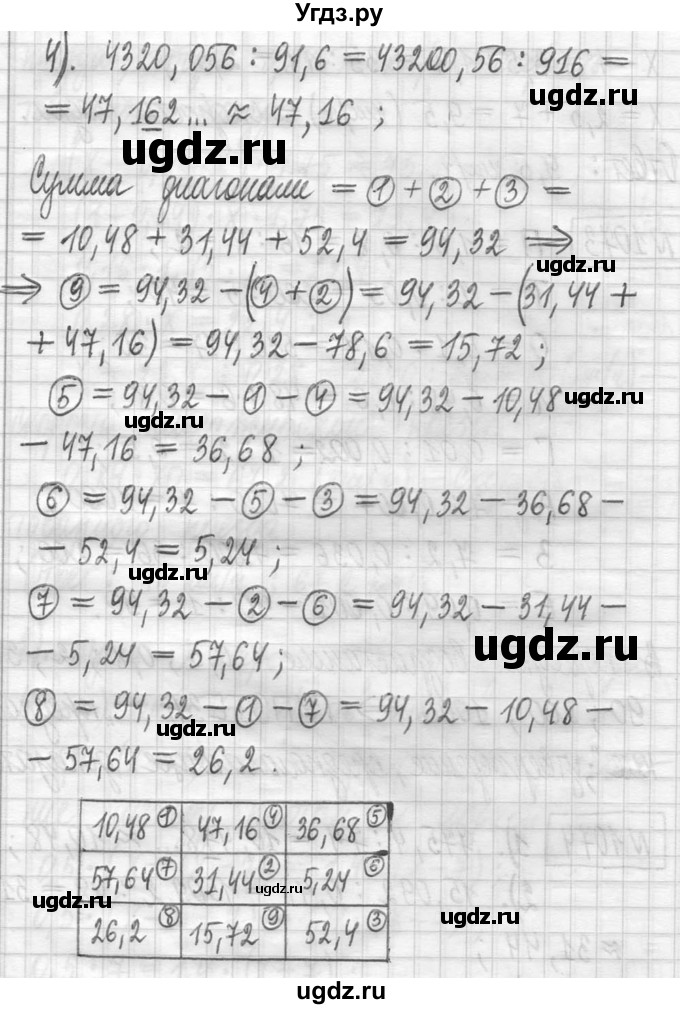 Угдз.ру
4). 4320,056 : 91,6 = 43200,56 : 916 =
ugdz.ru
= 47,162... ≈ 47,16 ;
ugdz.ru
Сумма диагонали = ① + ② + ③ =
= 10,48 + 31,44 + 52,4 = 94,32 ⇒
ugdz.ru
⇒ ⑨ = 94,32 − (④ + ②) = 94,32 − (31,44 +
+ 47,16) = 94,32 − 78,6 = 15,72 ;
⑤ = 94,32 − ① − ④ = 94,32 − 10,48
ugdz.ru
ugdz.ru
− 47,16 = 36,68 ;
⑥ = 94,32 − ⑤ − ③ = 94,32 − 36,68 −
− 52,4 = 5,24 ;
ugdz.ru
⑦ = 94,32 − ② − ⑥ = 94,32 − 31,44 −
ugdz.ru
− 5,24 = 57,64 ;
⑧ = 94,32 − ① − ⑦ = 94,32 − 10,48 −
ugdz.ru
− 57,64 = 26,2 .
10,48 ① 47,16 ④ 36,68 ⑤
57,64 ⑦ 31,44 ② 5,24 ⑥
ugdz.ru
ugdz.ru
26,2 ⑧ 15,72 ⑨ 52,4 ③
ugdz.ru
ugdz.ru
ugdz.ru